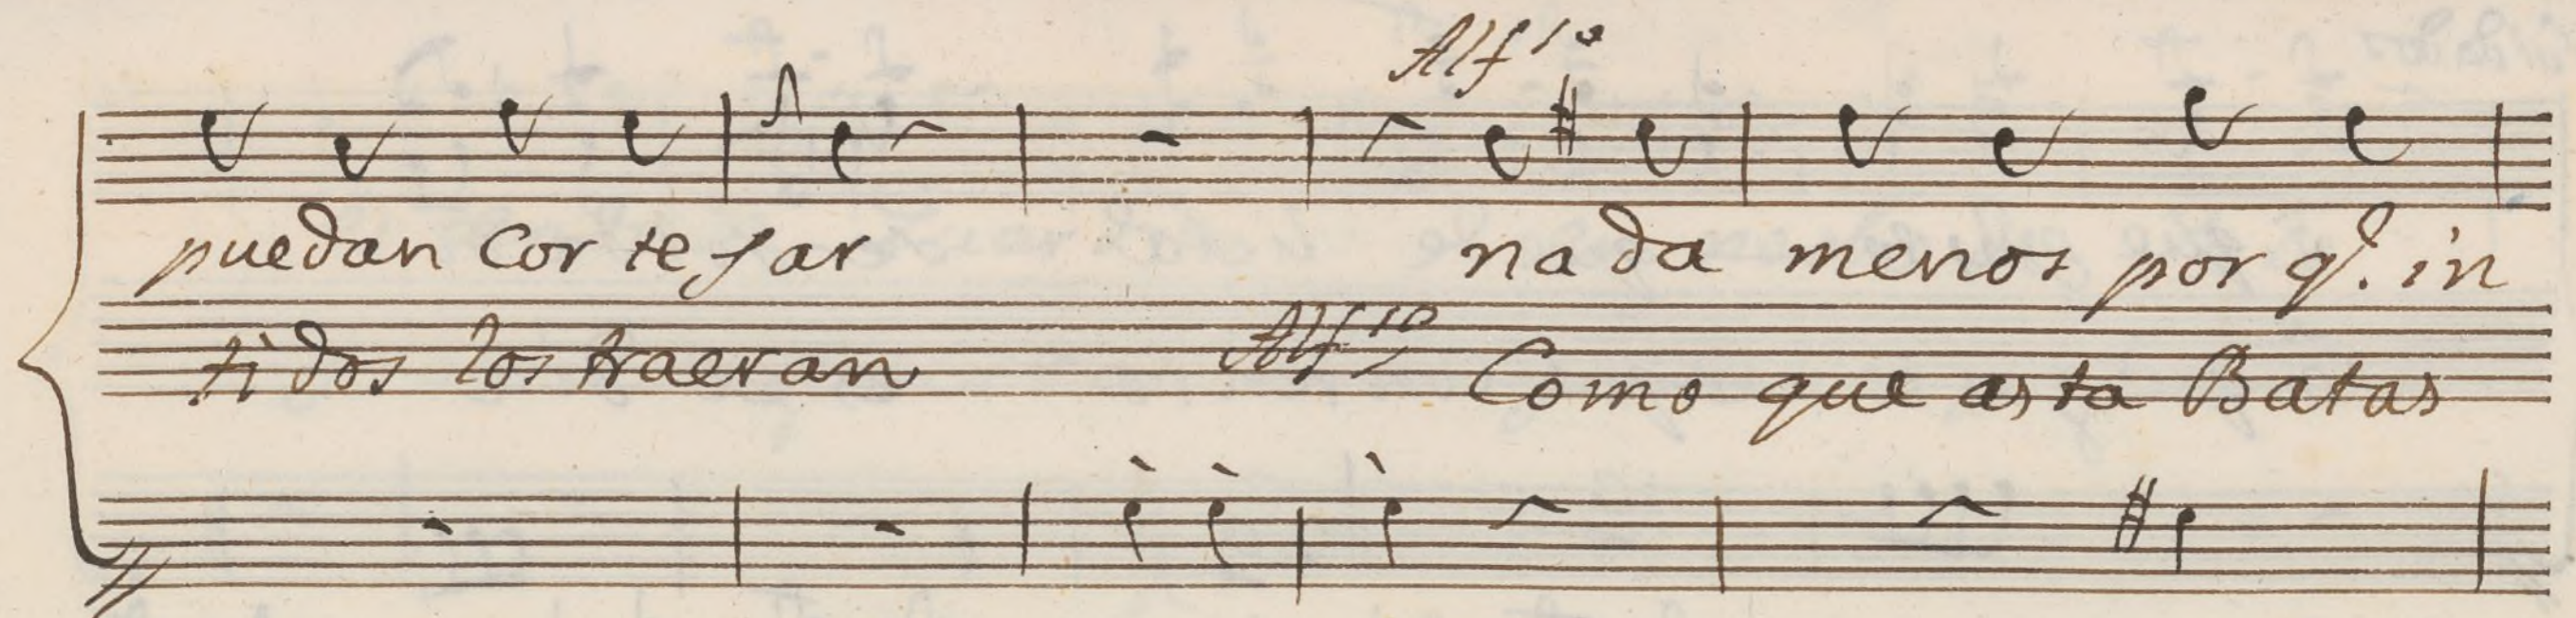 Alf^10
puedan Cor te jar nada menos por q^e. in
tidos los traeran Alf^10 Como que asta Batas